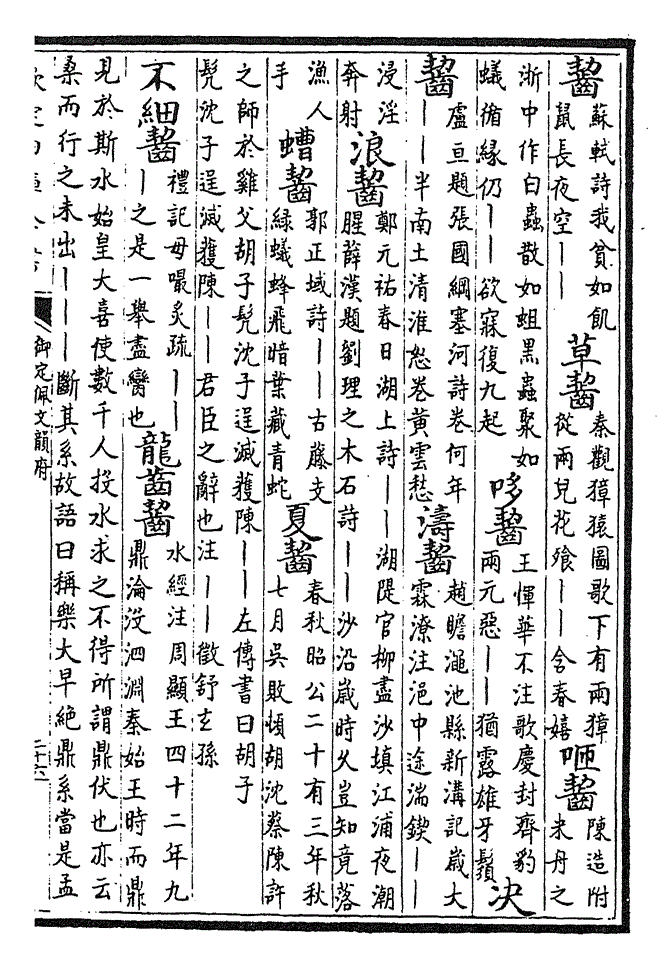 齧 蘇軾詩我貧如飢
鼠長夜空丨丨
草齧 秦觀獐猿圖歌下有兩獐
從兩兒花飱丨丨含春嬉
咂齧 陳造附
未丹之
浙中作白蟲散如蛆黑蟲聚如
蟻循緣仍丨丨欲寐復九起
哆齧 王惲華不注歌慶封齊豹
兩元惡丨丨猶露雄牙鬚
決齧
盧亘題張國綱塞河詩卷何年
丨丨半南土清淮怒卷黄雲愁
濤齧 趙瞻澠池縣新溝記嵗大
霖潦注浥中途湍鍥丨丨
浸淫
奔射
浪齧 鄭元祐春日湖上詩丨丨湖隄官柳盡沙填江浦夜潮
腥薛漢題劉理之木石詩丨丨沙沿嵗時乆豈知竟落
漁人
手
螬齧 郭正域詩丨丨古藤支
緑蟻蜂飛暗葉藏青蛇
夏齧 春秋昭公二十有三年秋
七月吳敗頓胡沈蔡陳許
之師於雞父胡子髠沈子逞滅獲陳丨丨左傳書曰胡子
髠沈子逞滅獲陳丨丨君臣之辭也注丨丨徵舒玄孫
不細齧 禮記毋嘬炙疏丨丨
丨之是一舉盡臠也
龍齒齧 水經注周顯王四十二年九
鼎淪没泗淵秦始王時而鼎
見於斯水始皇大喜使數千人投水求之不得所謂鼎伏也亦云
桑而行之未出丨丨丨斷其系故語曰稱樂大早絶鼎系當是孟
御定佩文韻府
二十六